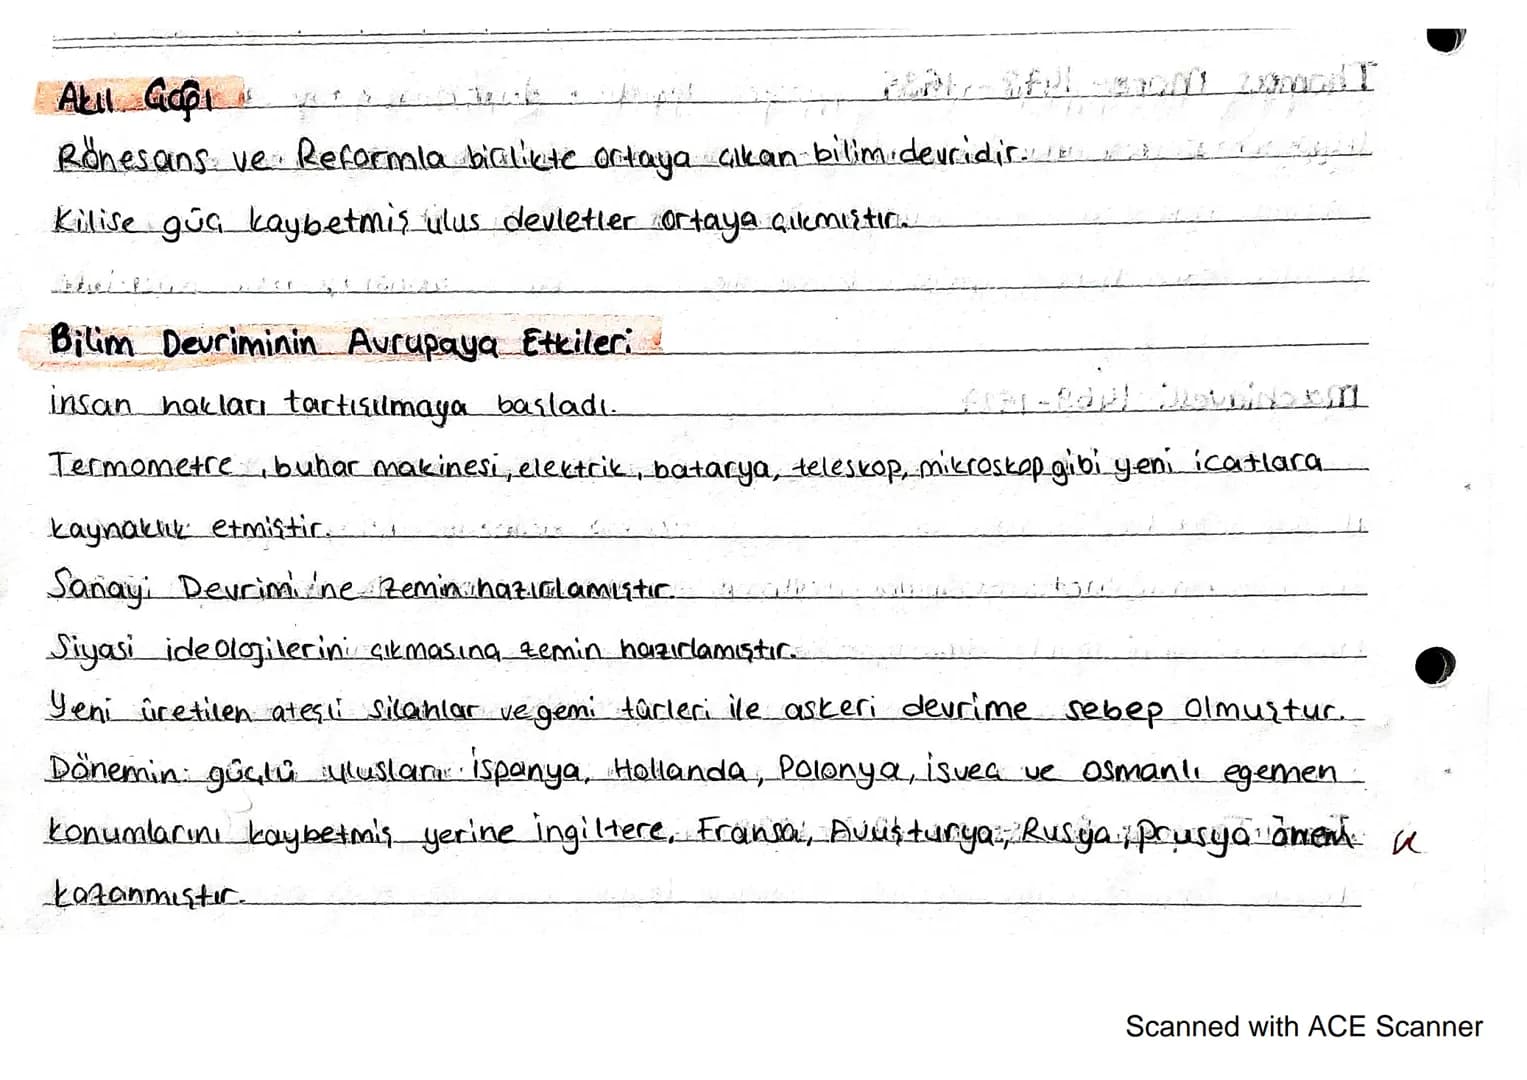 Akıl Çağı
Rönesans ve Reformla birlikte ortaya çıkan bilim devridir.
Kilise güç kaybetmiş ulus devletler ortaya çıkmıştır.
Bilim Devriminin Avrupaya Etkileri
insan hakları tartışılmaya başladı.
Termometre, buhar makinesi, elektrik, batarya, teleskop, mikroskop gibi yeni icatlara
kaynaklık etmiştir.
Sanayi Devrimi'ne zemin hazırlamıştır.
Siyasi ideolojilerini çıkmasına zemin hazırlamıştır.
Yeni üretilen ateşli silahlar ve gemi türleri ile askeri devrime sebep olmuştur.
Dönemin güçlü ulusları İspanya, Hollanda, Polonya, isveç ve Osmanlı egemen
konumlarını kaybetmiş yerine ingiltere, Fransa, Avusturya, Rusya, Prusya önem
kazanmıştır.
Scanned with ACE Scanner